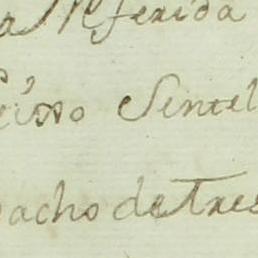 a Referida
eisso Sentel
pacho de Tres